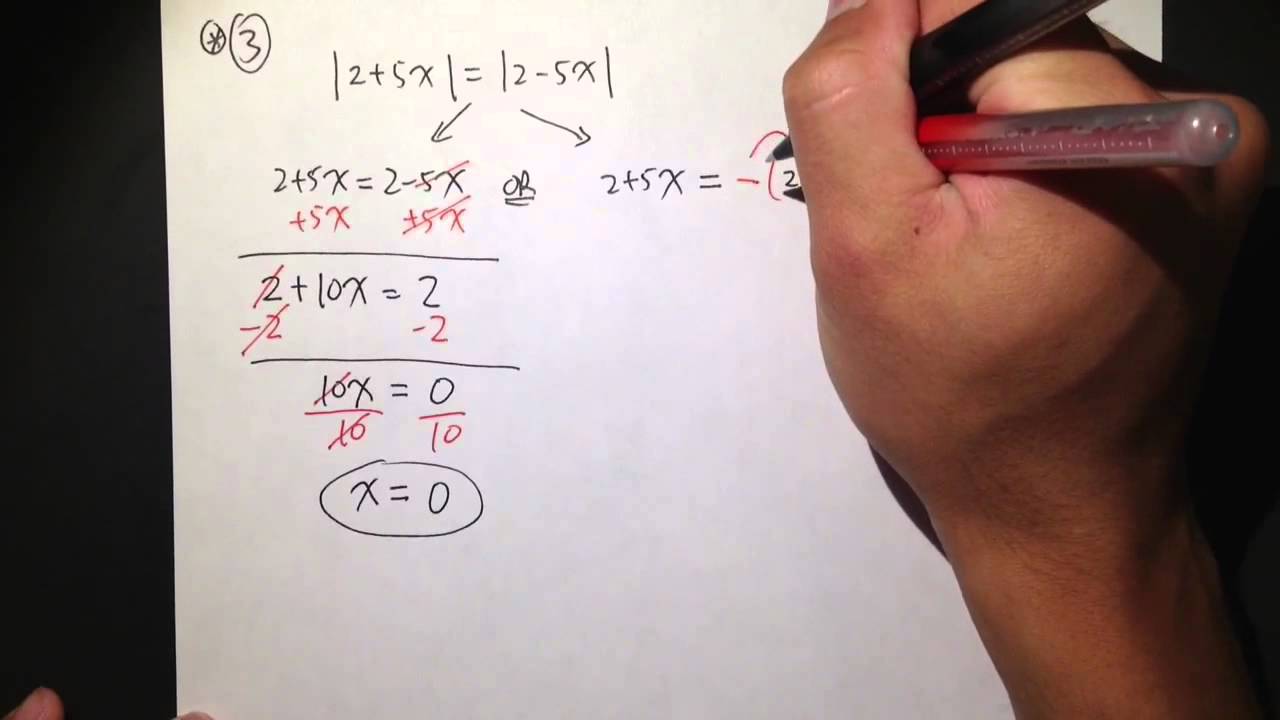 * 3
|2+5x| = |2-5x|
2+5x = 2-5x OR 2+5x = -(2
+5x +5x
2+10x = 2
-2 -2
10x = 0
10 10
x = 0